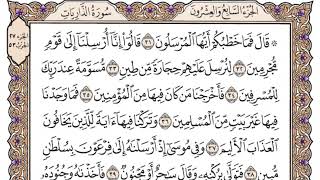 الجزء السابع والعشرون
سورة الذاريات
الجزء ٢٧
قَالَ فَمَا خَطْبُكُمْ أَيُّهَا الْمُرْسَلُونَ ٣١ قَالُوا إِنَّا أُرْسِلْنَا إِلَى قَوْمٍ
مُّجْرِمِينَ ٣٢ لِنُرْسِلَ عَلَيْهِمْ حِجَارَةً مِّن طِينٍ ٣٣ مُّسَوَّمَةً عِندَ رَبِّكَ
لِلْمُسْرِفِينَ ٣٤ فَأَخْرَجْنَا مَن كَانَ فِيهَا مِنَ الْمُؤْمِنِينَ ٣٥ فَمَا وَجَدْنَا
فِيهَا غَيْرَ بَيْتٍ مِّنَ الْمُسْلِمِينَ ٣٦ وَتَرَكْنَا فِيهَا ءَايَةً لِّلَّذِينَ يَخَافُونَ
الْعَذَابَ الْأَلِيمَ ٣٧ وَفِي مُوسَى إِذْ أَرْسَلْنَاهُ إِلَى فِرْعَوْنَ بِسُلْطَانٍ
مُّبِينٍ ٣٨ فَتَوَلَّى بِرُكْنِهِ وَقَالَ سَاحِرٌ أَوْ مَجْنُونٌ ٣٩ فَأَخَذْنَاهُ وَجُنُودَهُ